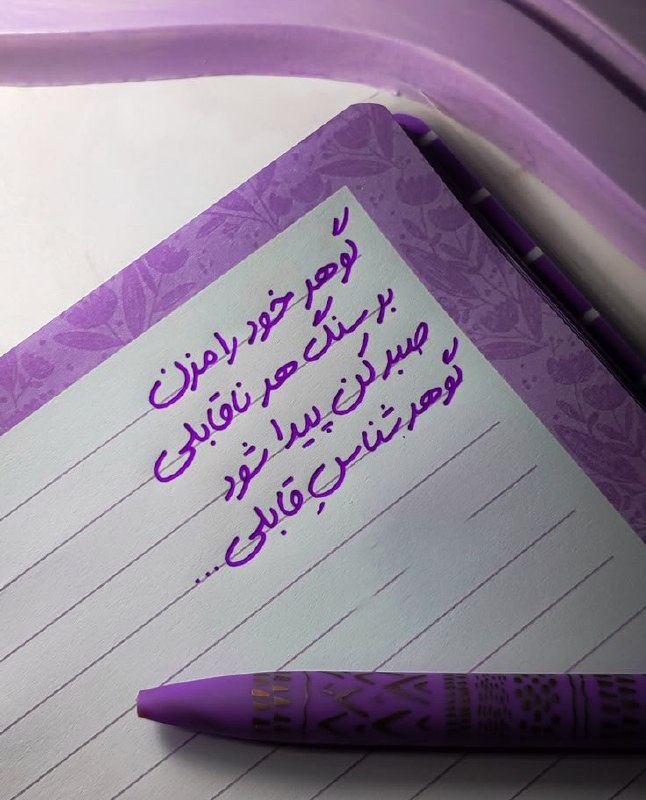 گوهر خود را مزن
بر سنگ هر ناقابلی
صبر کن پیدا شود
گوهر شناسِ قابلی...